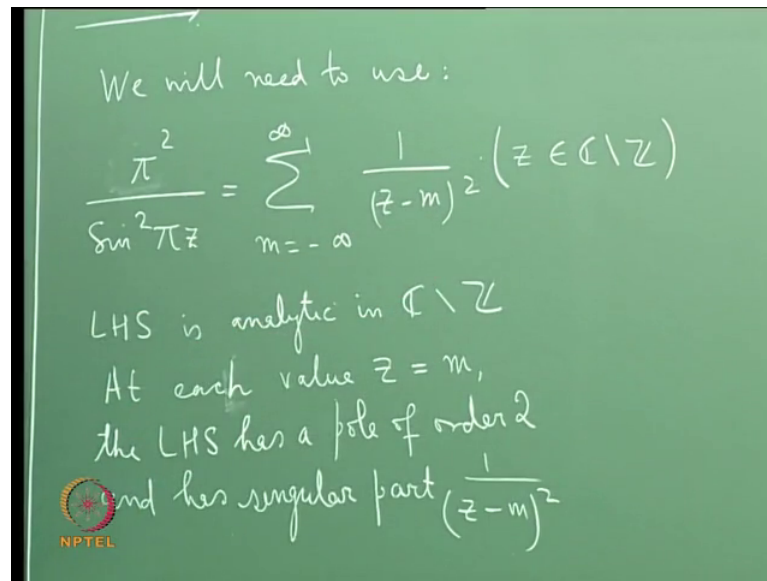 We will need to use:
π² / Sin²πz = ∞ Σ m=-∞ 1 / (z-m)² (z ∈ ℂ\ℤ)
LHS is analytic in ℂ\ℤ
At each value z = m,
the LHS has a pole of order 2
and has singular part 1 / (z-m)²
NPTEL